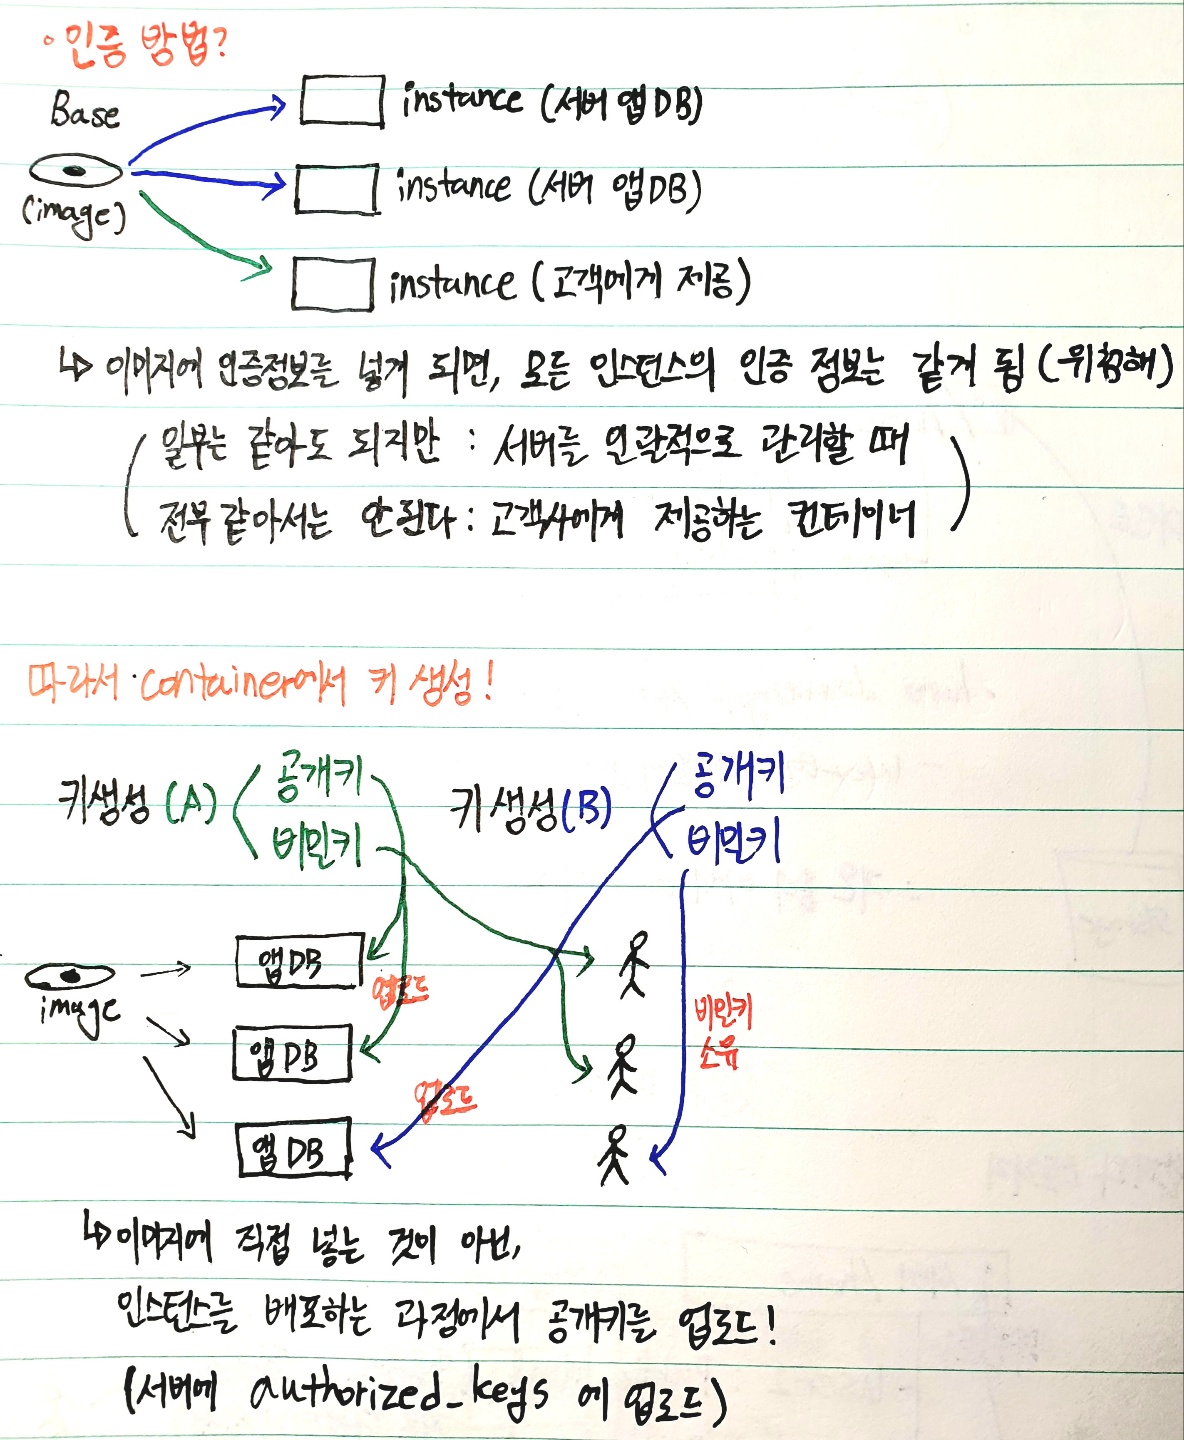 • 인증 방법?
Base
(image)
instance (서버 앱 DB)
instance (서버 앱 DB)
instance (고객에게 제공)
↳ 이미지에 인증정보를 넣게 되면, 모든 인스턴스의 인증 정보는 같게 됨 (위험해)
일부는 같아도 되지만 : 서버를 연관적으로 관리할 때
전부 같아서는 안된다 : 고객사에게 제공하는 컨테이너
따라서 container에서 키 생성!
키생성 (A)
공개키
비밀키
키 생성 (B)
공개키
비밀키
image
앱 DB
업로드
앱 DB
업로드
앱 DB
비밀키
소유
↳ 이미지에 직접 넣는 것이 아닌,
인스턴스를 배포하는 과정에서 공개키를 업로드!
(서버에 authorized_keys 에 업로드)